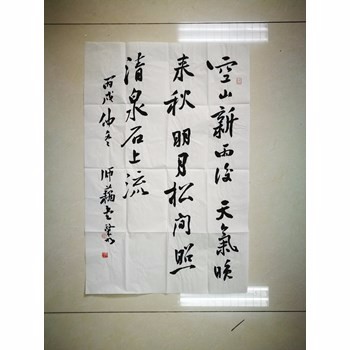 空山新雨後天氣晚
来秋明月松间照
清泉石上流
丙戌仲冬
師